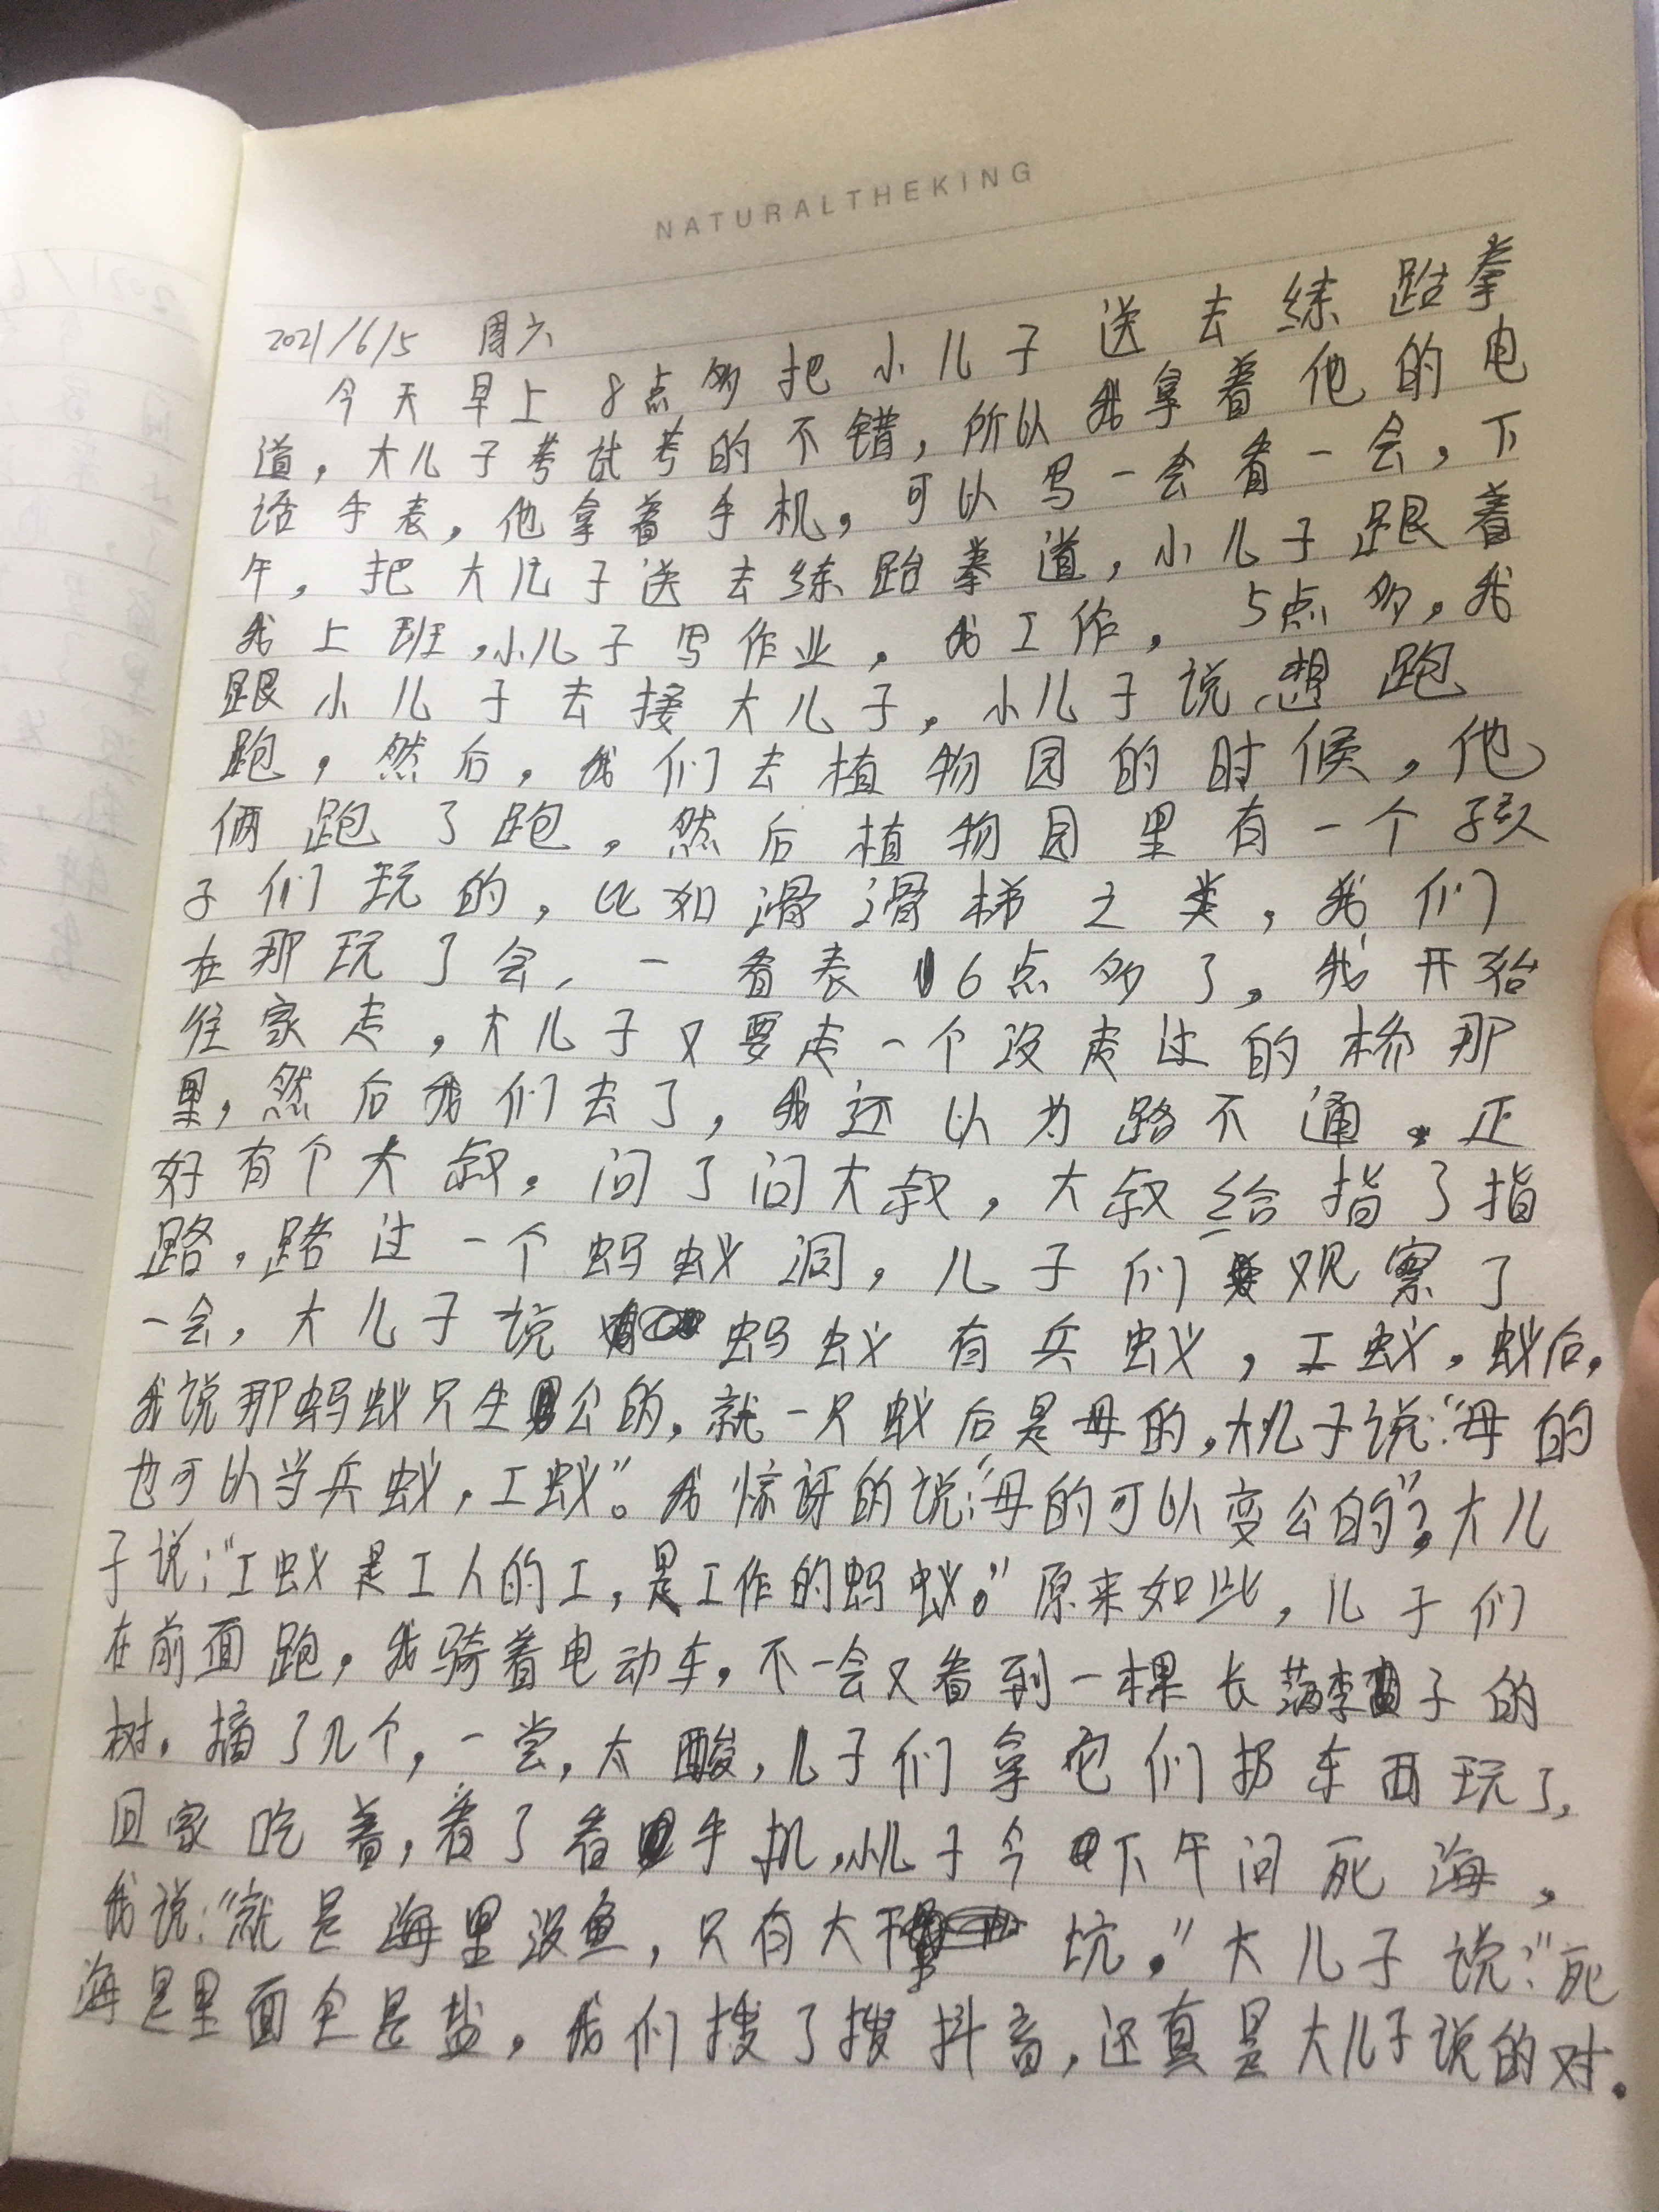 NATURALTHEKING
2021/6/5 周六
今天早上8点多把小儿子送去练跆拳
道，大儿子考试考的不错，所以我拿着他的电
话手表，他拿着手机，可以写一会看一会，下
午，把大儿子送去练跆拳道，小儿子跟着
我上班，小儿子写作业，我工作，5点多，我
跟小儿子去接大儿子，小儿子说想跑
跑，然后，我们去植物园的时候，他
俩跑了跑，然后植物园里有一个孩
子们玩的，比如滑滑梯之类，我们
在那玩了会，一看表6点多了，我开始
往家走，大儿子又要走一个没走过的桥那
里，然后我们去了，我还以为路不通。正
好有个大叔。问了问大叔，大叔给指了指
路，路过一个蚂蚁洞，儿子们观察了
一会，大儿子说蚂蚁有兵蚁，工蚁，蚁后，
我说那蚂蚁只生公的，就一只蚁后是母的，大儿子说：“母的
也可以当兵蚁，工蚁”。我惊讶的说：“母的可以变公的”？大儿
子说：“工蚁是工人的工，是工作的蚂蚁。”原来如此，儿子们
在前面跑，我骑着电动车，不一会又看到一棵长满李子的
树。摘了几个，一尝，太酸，儿子们拿它们扔东西玩了，
回家吃着，看了看手机，小儿子今下午问死海，
我说：“就是海里没鱼，只有大坑。”大儿子说：“死
海是里面全是盐，我们搜了搜抖音，还真是大儿子说的对。